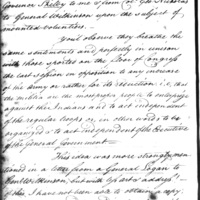 Governor Shelby to me & from Col. Geo. Nicholas
to General Wilkinson upon the subject of
mounted volunteers.
You'll observe they breathe the
same sentiments and perfectly in unison
with those quoted on the floor of Congress
the last session in opposition to any increase
of the Army or rather for its reduction i.e. that
the militia are the competent people to enterprize
against the Indians and to act independent
of the regular troops or in other words to be
organized & to act independent of the Executive
of the General Government
This idea was more strongly men-
tioned in a letter from a General Logan to
Gen. Wilkinson, but with
I have not been able to obtain a copy